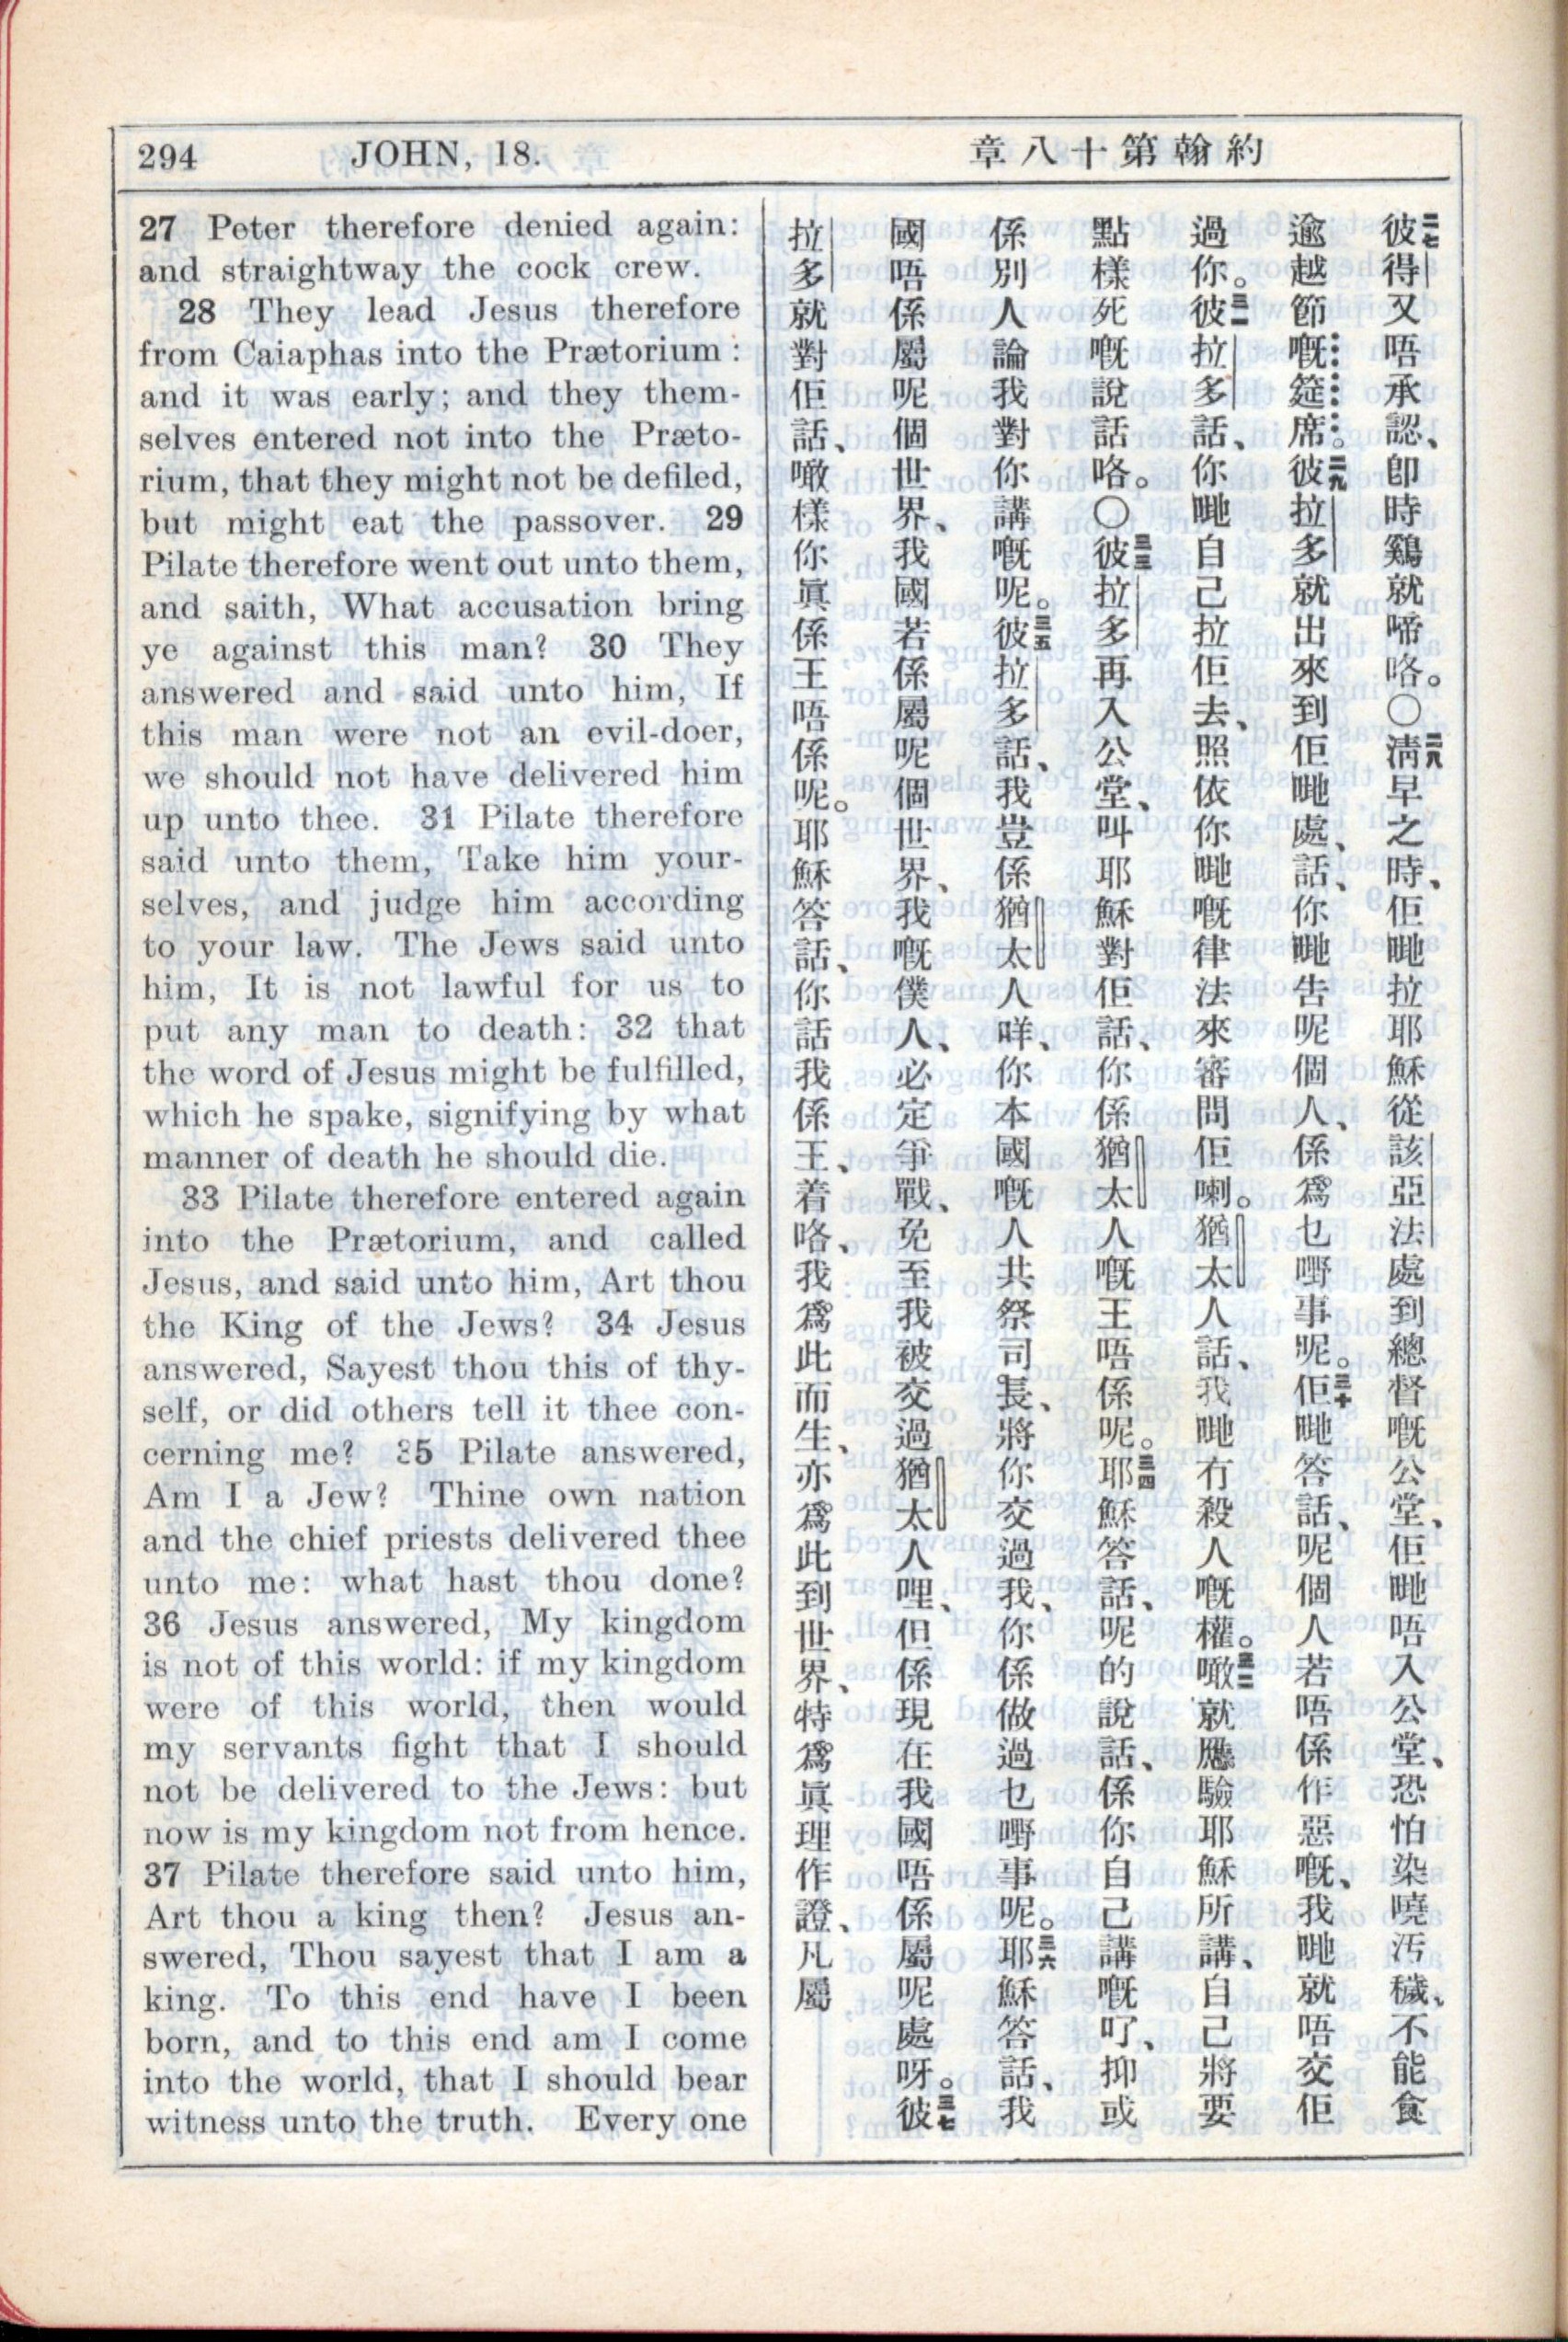 294 JOHN, 18.
約翰第十八章
27 Peter therefore denied again:
and straightway the cock crew.
28 They lead Jesus therefore
from Caiaphas into the Prætorium:
and it was early; and they them-
selves entered not into the Præto-
rium, that they might not be defiled,
but might eat the passover. 29
Pilate therefore went out unto them,
and saith, What accusation bring
ye against this man? 30 They
answered and said unto him, If
this man were not an evil-doer,
we should not have delivered him
up unto thee. 31 Pilate therefore
said unto them, Take him your-
selves, and judge him according
to your law. The Jews said unto
him, It is not lawful for us to
put any man to death: 32 that
the word of Jesus might be fulfilled,
which he spake, signifying by what
manner of death he should die.
33 Pilate therefore entered again
into the Prætorium, and called
Jesus, and said unto him, Art thou
the King of the Jews? 34 Jesus
answered, Sayest thou this of thy-
self, or did others tell it thee con-
cerning me? 35 Pilate answered,
Am I a Jew? Thine own nation
and the chief priests delivered thee
unto me: what hast thou done?
36 Jesus answered, My kingdom
is not of this world: if my kingdom
were of this world, then would
my servants fight that I should
not be delivered to the Jews: but
now is my kingdom not from hence.
37 Pilate therefore said unto him,
Art thou a king then? Jesus an-
swered, Thou sayest that I am a
king. To this end have I been
born, and to this end am I come
into the world, that I should bear
witness unto the truth. Every one
二七彼得又唔承認、卽時鷄就啼咯。〇二八淸早之時、佢哋拉耶穌從該亞法處到總督嘅公堂、佢哋唔入公堂、恐怕染嘵汚穢、不能食
逾越節嘅筵席。二九彼拉多就出來到佢哋處、話、你哋告呢個人、係爲乜嘢事呢。三十佢哋答話、呢個人若唔係作惡嘅、我哋就唔交佢
過你。三一彼拉多話、你哋自己拉佢去、照依你哋嘅律法來審問佢喇。猶太人話、我哋冇殺人嘅權。三二噉就應驗耶穌所講、自己將要
點樣死嘅說話咯。〇三三彼拉多再入公堂、叫耶穌對佢話、你係猶太人嘅王唔係呢。三四耶穌答話、呢的說話、係你自己講嘅吖、抑或
係別人論我對你講嘅呢。三五彼拉多話、我豈係猶太人咩、你本國嘅人共祭司長、將你交過我、你係做過乜嘢事呢。三六耶穌答話、我
國唔係屬呢個世界、我國若係屬呢個世界、我嘅僕人、必定爭戰、免至我被交過猶太人哩、但係現在我國唔係屬呢處呀。三七彼
拉多就對佢話、噉樣你眞係王唔係呢。耶穌答話、你話我係王、着咯、我爲此而生、亦爲此到世界、特爲眞理作證、凡屬